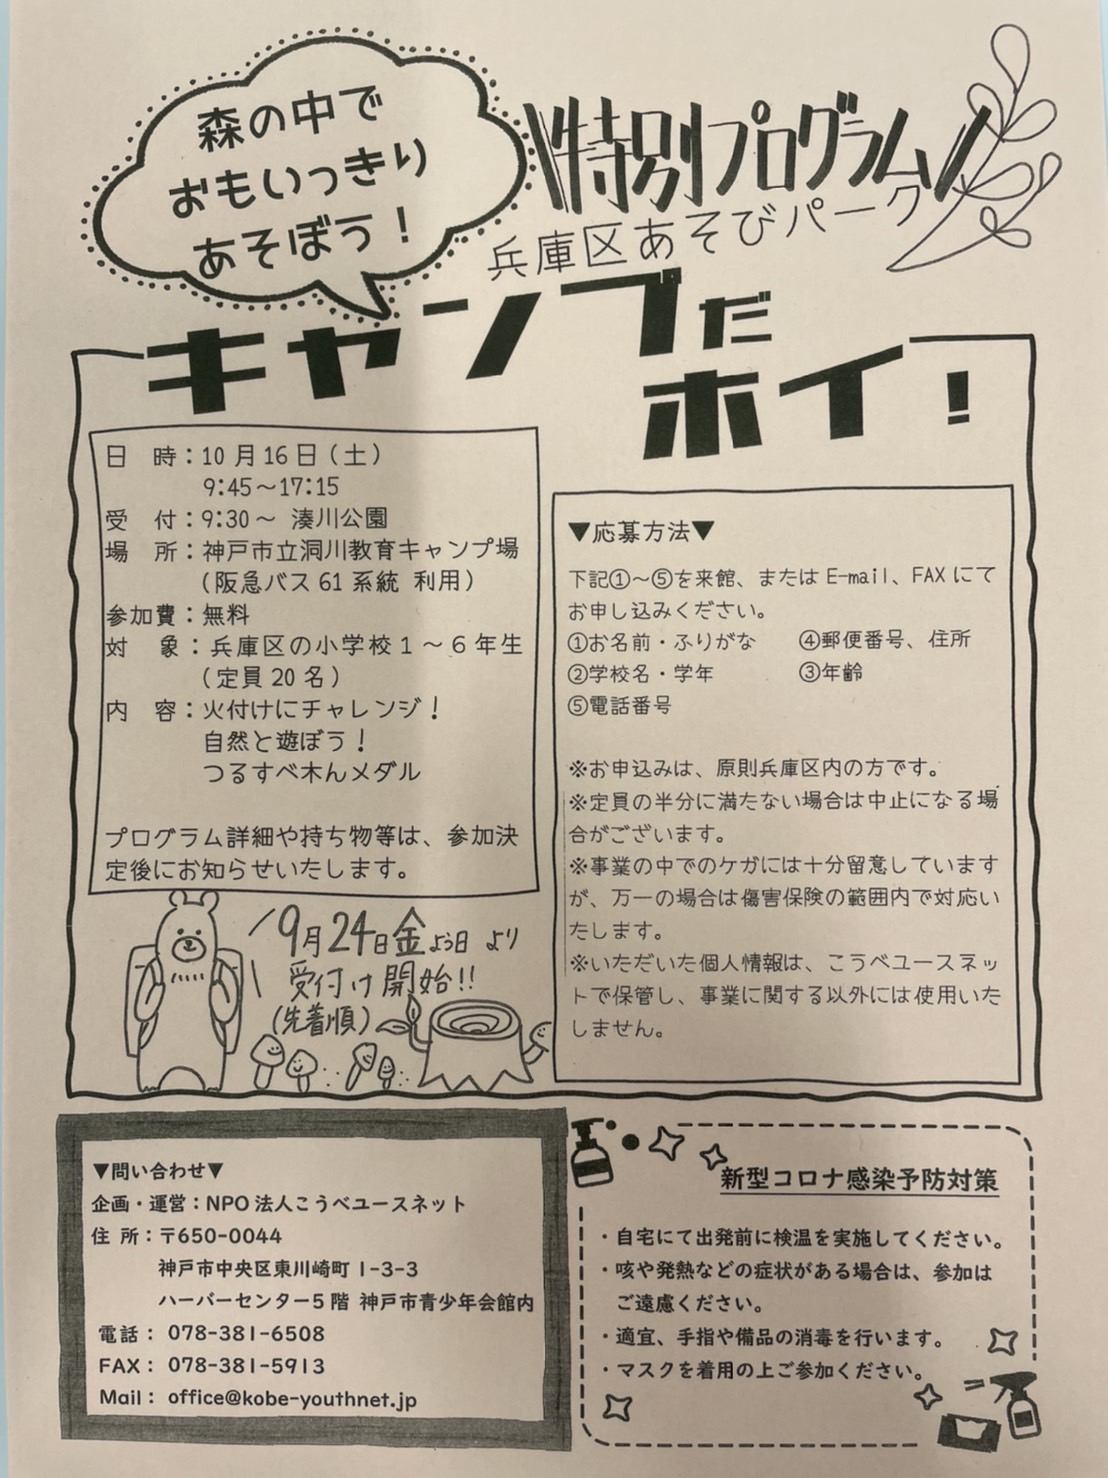 森の中で
おもいっきり
あそぼう！
\\特別プログラム//
兵庫区あそびパーク
キャンプだ
ホイ！
日　時：10月16日（土）
9:45～17:15
受　付：9:30～ 湊川公園
場　所：神戸市立洞川教育キャンプ場
（阪急バス 61 系統 利用）
参加費：無料
対　象：兵庫区の小学校１～６年生
（定員 20 名）
内　容：火付けにチャレンジ！
自然と遊ぼう！
つるすべ木んメダル
プログラム詳細や持ち物等は、参加決
定後にお知らせいたします。
9月24日金よう日 より
受付け開始!!
（先着順）
▼応募方法▼
下記①～⑤を来館、または E-mail、FAX にて
お申し込みください。
①お名前・ふりがな　④郵便番号、住所
②学校名・学年　③年齢
⑤電話番号
※お申込みは、原則兵庫区内の方です。
※定員の半分に満たない場合は中止になる場
合がございます。
※事業の中でのケガには十分留意しています
が、万一の場合は傷害保険の範囲内で対応い
たします。
※いただいた個人情報は、こうべユースネッ
トで保管し、事業に関する以外には使用いた
しません。
▼問い合わせ▼
企画・運営：NPO 法人こうべユースネット
住 所：〒650-0044
神戸市中央区東川崎町 1-3-3
ハーバーセンター5 階 神戸市青少年会館内
電話： 078-381-6508
FAX： 078-381-5913
Mail： office@kobe-youthnet.jp
新型コロナ感染予防対策
・自宅にて出発前に検温を実施してください。
・咳や発熱などの症状がある場合は、参加は
ご遠慮ください。
・適宜、手指や備品の消毒を行います。
・マスクを着用の上ご参加ください。